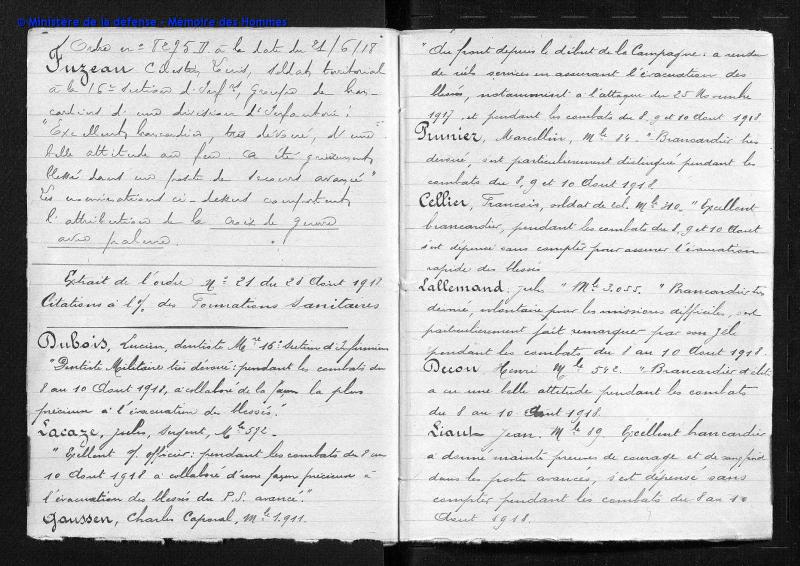 © Ministère de la défense - Mémoire des Hommes
Ordre n° 8295 D à la date du 21/6/18
Fuzeau Célestin, Louis, soldat territorial
à la 16e section d'Infrs, groupe de bran-
cardiers d'une division d'Infanterie :
"Excellent brancardier, très dévoué, d'une
belle attitude au feu. A été grièvement
blessé dans un poste de secours avancé"
Les nominations ci-dessus comportent
l'attribution de la croix de guerre
avec palme.
Extrait de l'ordre n° 21 du 21 Août 1918
Citations à l'O. des Formations Sanitaires
Dubois, Lucien, dentiste Mre 16e Section d'Infirmiers
"Dentiste Militaire très dévoué : pendant les combats du
8 au 10 Août 1918, a collaboré de la façon la plus
précieuse à l'évacuation des blessés."
Lacaze, Jules, Sergent, Mle 592 -
"Excellent S. officier : pendant les combats du 8 au
10 Août 1918 a collaboré d'une façon précieuse à
l'évacuation des blessés du P.S. avancé"
Gaussen, Charles Caporal, Mle 1.911.
"Au front depuis le début de la Campagne : a rendu
de réels services en assurant l'évacuation des
blessés, notamment à l'attaque du 25 Novembre
1917 et pendant les combats du 8, 9 et 10 Août 1918.
Prunier, Marcellin, Mle 84. "Brancardier très
dévoué, s'est particulièrement distingué pendant les
combats du 8, 9 et 10 Août 1918.
Cellier, François, soldat de 2cl. Mle 310. "Excellent
brancardier, pendant les combats du 8, 9 et 10 Août
s'est dépensé sans compter pour assurer l'évacuation
rapide des blessés
Lallemand Jules " Mle 3.055. "Brancardier très
dévoué, volontaire pour les missions difficiles, s'est
particulièrement fait remarquer par son zèle
pendant les combats du 8 au 10 Août 1918.
Henri Mle 542. "Brancardier d'élite
a eu une belle attitude pendant les combats
du 8 au 10 Août 1918.
Jean. Mle 89. Excellent brancardier
a donné mainte preuves de courage et de sang froid
dans les postes avancés, s'est dépensé sans
compter pendant les combats du 8 au 10
Août 1918.